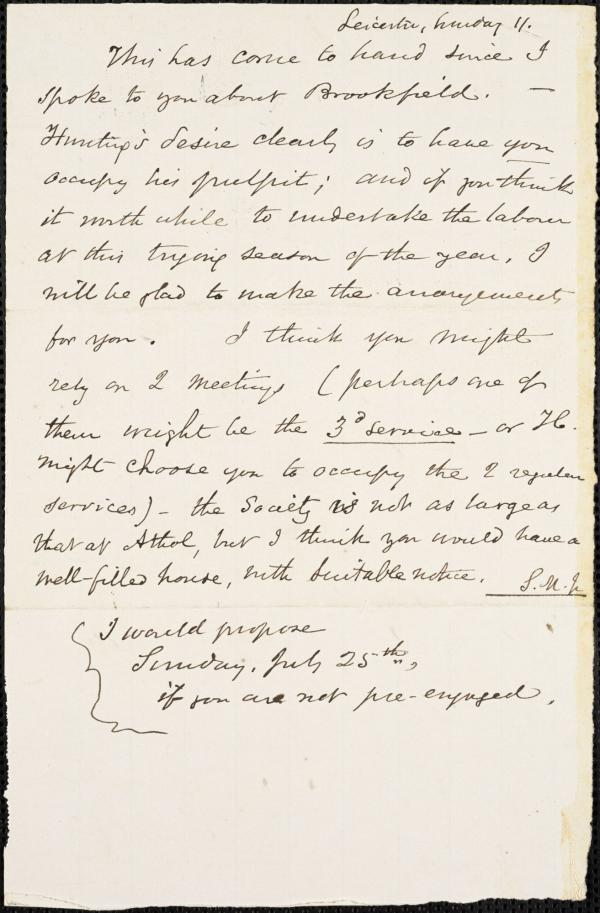 Leicester, Sunday 11.
This has come to hand since I
spoke to you about Brookfield. —
Hunting's desire clearly is to have you
occupy his pulpit; and if you think
it worth while to undertake the labour
at this trying season of the year, I
will be glad to make the arrangements
for you. I think you might
rely on 2 meetings (perhaps one of
them might be the 3d service — or H.
might choose you to occupy the 2 regular
services) — the Society is not as large as
that at Athol, but I think you would have a
well-filled house, with suitable notice. S. M. Jr
I would propose
Sunday, July 25th,
if you are not pre-engaged.